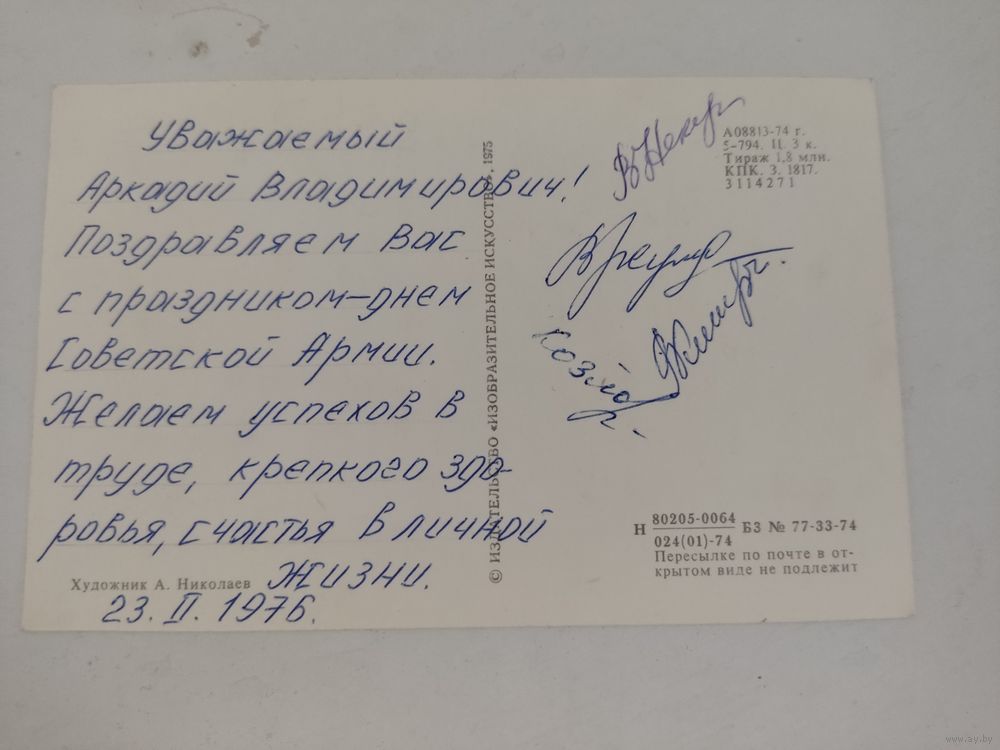 Уважаемый
Аркадий Владимирович!
Поздравляем Вас
с праздником-днем
Советской Армии.
Желаем успехов в
труде, крепкого здо-
ровья, счастья в личной
жизни.
Художник А. Николаев
23. II. 1976.
© ИЗДАТЕЛЬСТВО «ИЗОБРАЗИТЕЛЬНОЕ ИСКУССТВО», 1975
А08813-74 г.
5-794. Ц. 3 к.
Тираж 1,8 млн.
КПК. З. 1817.
3114271
Н 80205-0064
024(01)-74
БЗ № 77-33-74
Пересылке по почте в от-
крытом виде не подлежит
www.ay.by